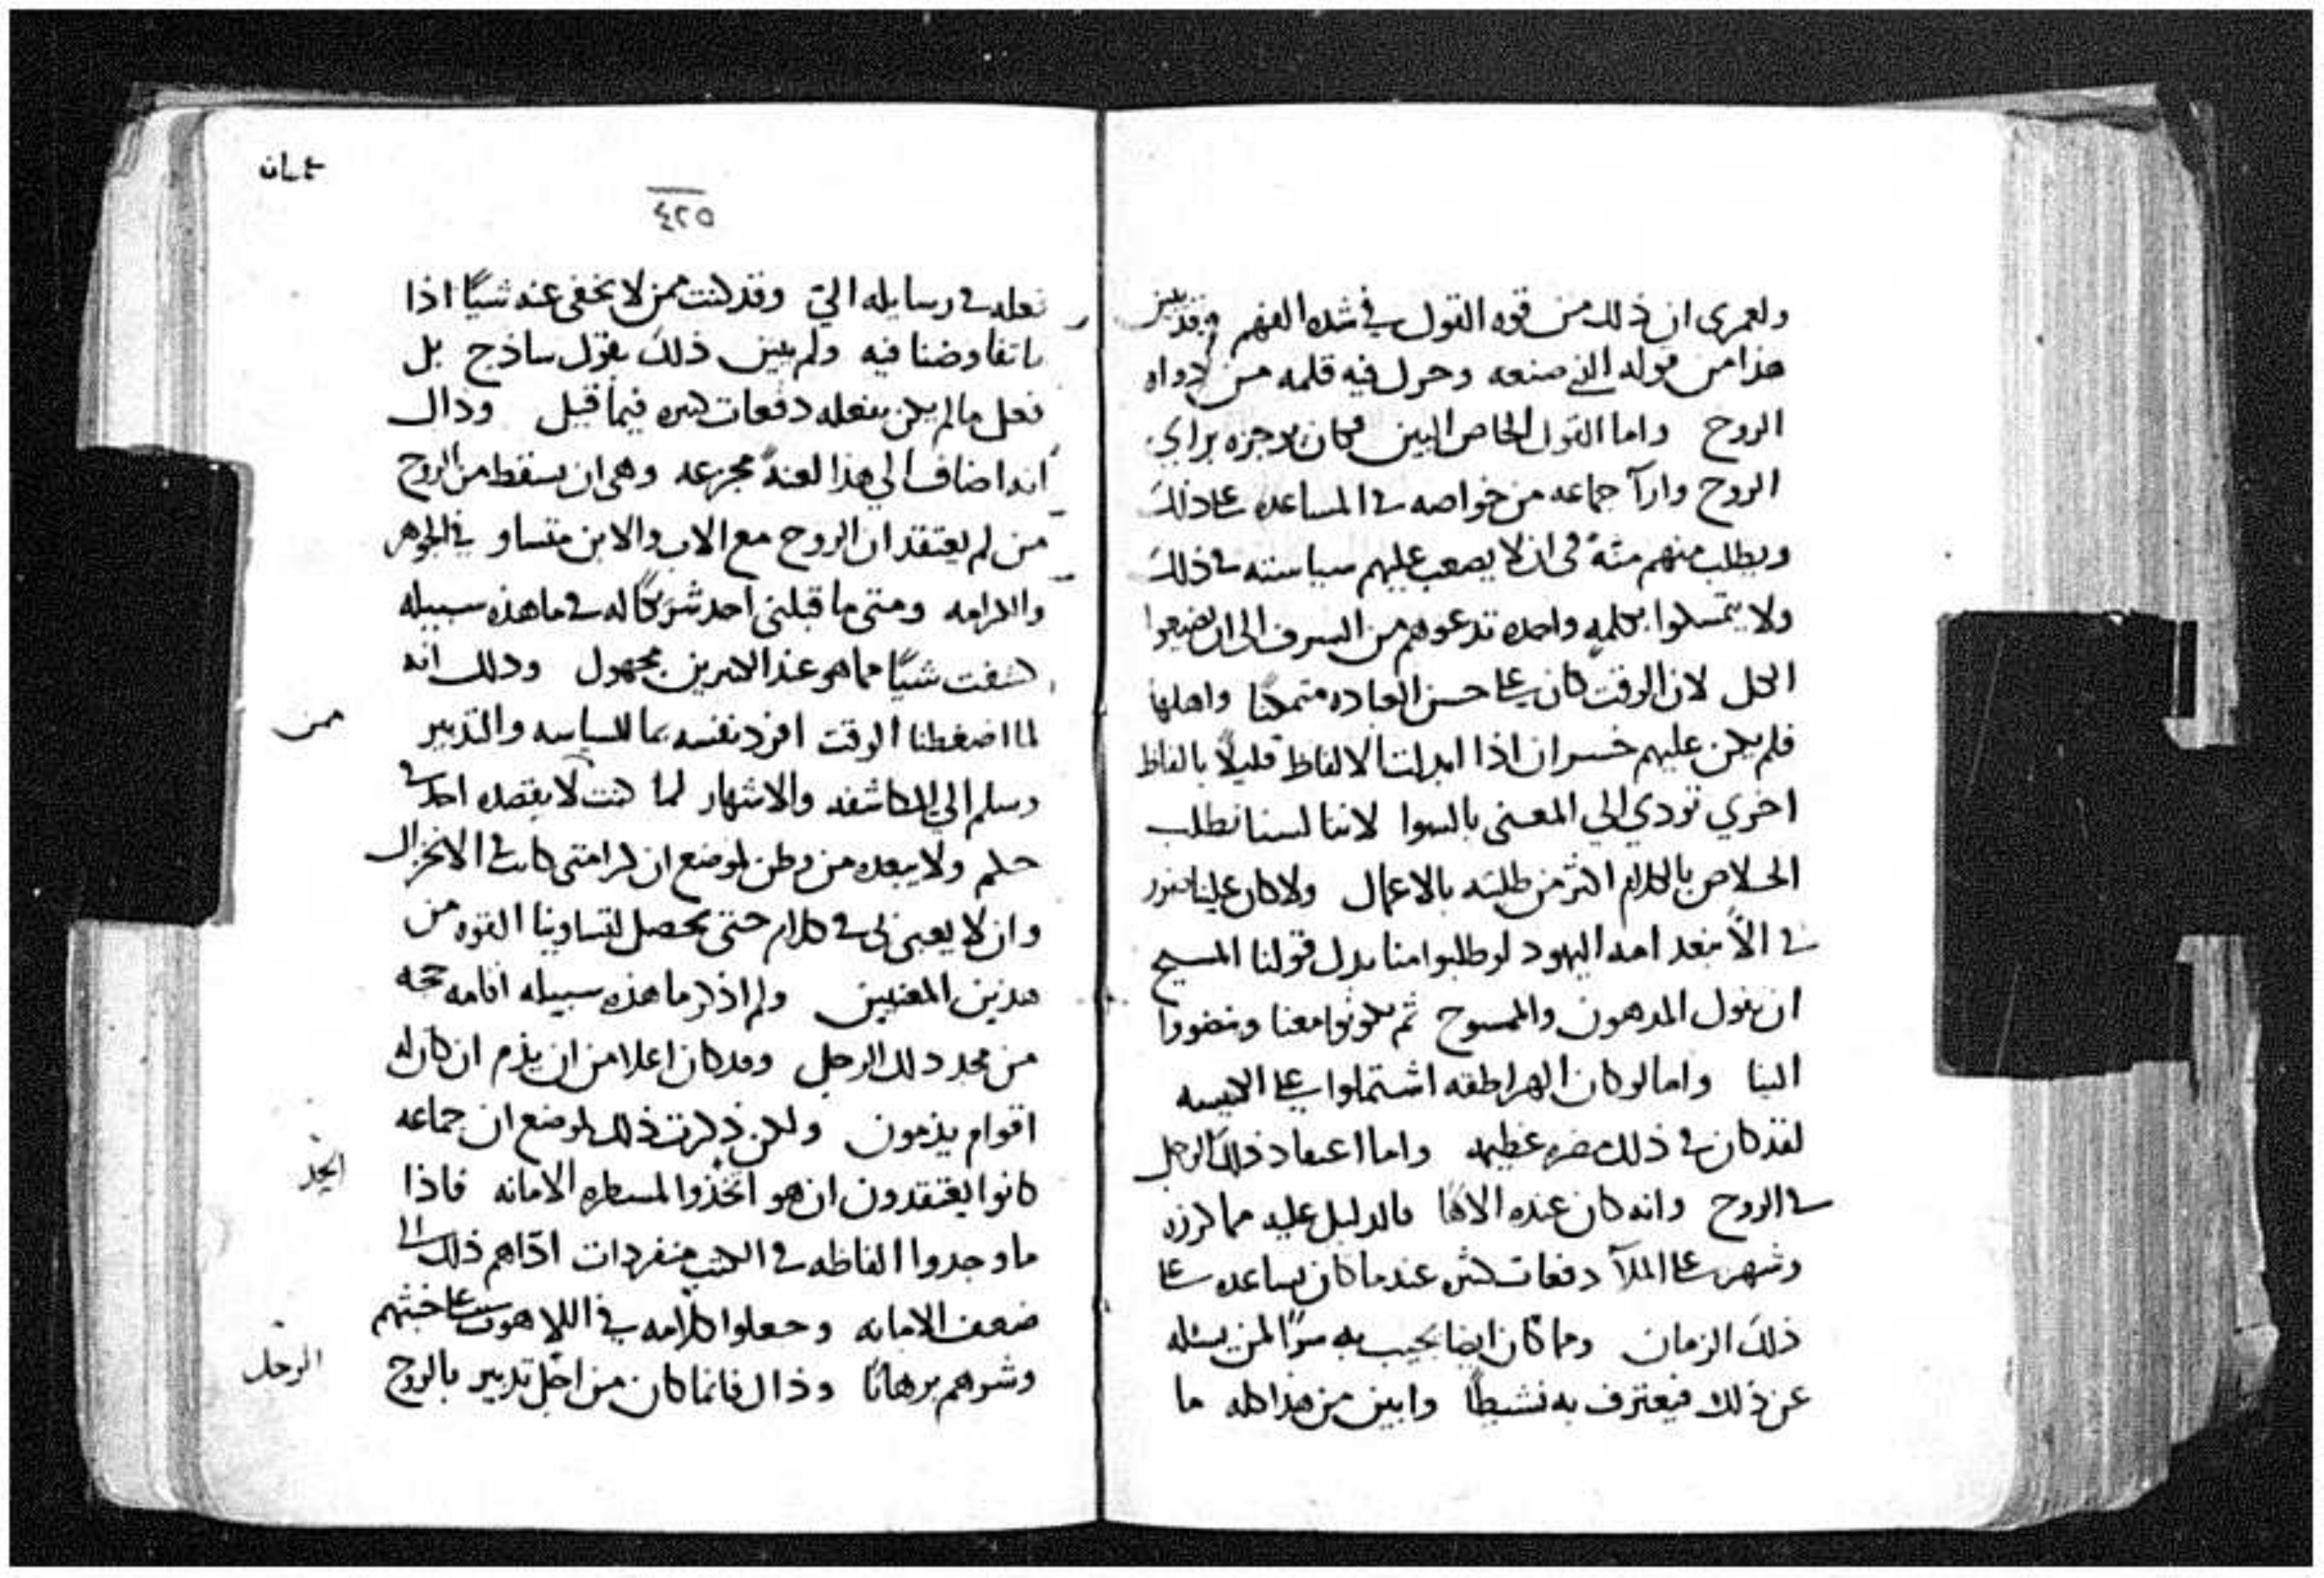 ولعمرى ان ذلك من قوه القول في شده الفهم وقد تبين
هذا من قوله الذي صنعه وحرك فيه قلمه من دواه
الروح واما القول الخاص البين فكان يدجزه براي
الروح وارآ جماعه من خواصه في المساعده على ذلك
ويطلب منهم مثة في ان لا يصعب عليهم سياسته في ذلك
ولا يتمسكوا بكلمه واحده تدعوهم من السرف الى ان يضيعوا
الكل لان الوقت كان على حسن العاده متمكنا واهلها
فلم يكن عليهم خسران اذا ابدلت الالفاظ قليلاً بالفاظ
اخري تودي الي المعنى بالسوا لاننا لسنا نطلب
الخلاص بالكلام اكثر من طلبته بالاعمال ولا كان علينا ضرر
في الا نبعد امه اليهود لو طلبوا منا بدل قولنا المسيح
ان نقول المدهون والممسوح ثم يكونوا معنا وينضووا
الينا واما لو كان الهراطقه اشتملوا على الكنيسه
لقد كان في ذلك مضره عظيمه واما اعتقاد ذلك الرجل
في الروح وانه كان عنده الاهًا فالدليل عليه مما كرزه
وشهره على الملآ دفعات كثيره عندما كان يساعده على
ذلك الزمان ومما كان ايضا يجيب به سرًا لمن يسئله
عن ذلك فيعترف به نشيطًا وابين من هذا كله ما
٤٢٥
فعله في رسايله الىّ وقد كنت ممن لا يخفى عنه شيًا اذا
ما تفاوضنا فيه ولم يبين ذلك بقول ساذج بل
فعل ما لم يكن يفعله دفعات كثيره فيما قبل وذاك
انه اضاف الي هذا لعنةً مجزعه وهى ان يسقط من الروح
من لم يعتقد ان الروح مع الاب والابن متساو في الجوهر
والكرامه ومتى ما قبلنى احد شريكًا له في ما هذه سبيله
كشفت شيًا مما هو عند الاكثرين مجهول وذلك انه
لما اضغطنا الوقت افرد نفسه بما للسياسه والتدبير
وسلم الي المكاشفه والاشهار لما كنت لا يقصده احد في
حكم ولا يبعده من وطن لموضع ان كرامتى كانت في الانخزال
وان لا يعبى بي في كلام حتى يحصل لتساوينا القوه من
هذين المعنيين ولم اذكر ما هذه سبيله اقامه حجه
من مجد ذلك الرجل وقد كان اعلا من ان يذم ان كان له
اقوام يذمون ولكن ذكرت ذلك لموضع ان جماعه
كانوا يعتقدون ان هو اتخذوا لمسطره الامانه فاذا
ما وجدوا الفاظه في الكتب منفردات ادّاهم ذلك الى
ضعف الامانه وجعلوا كلامه في اللاهوت على خبثهم
وشرهم برهانًا وذاك فانما كان من اجل تدبير بالروح
من
الرجل